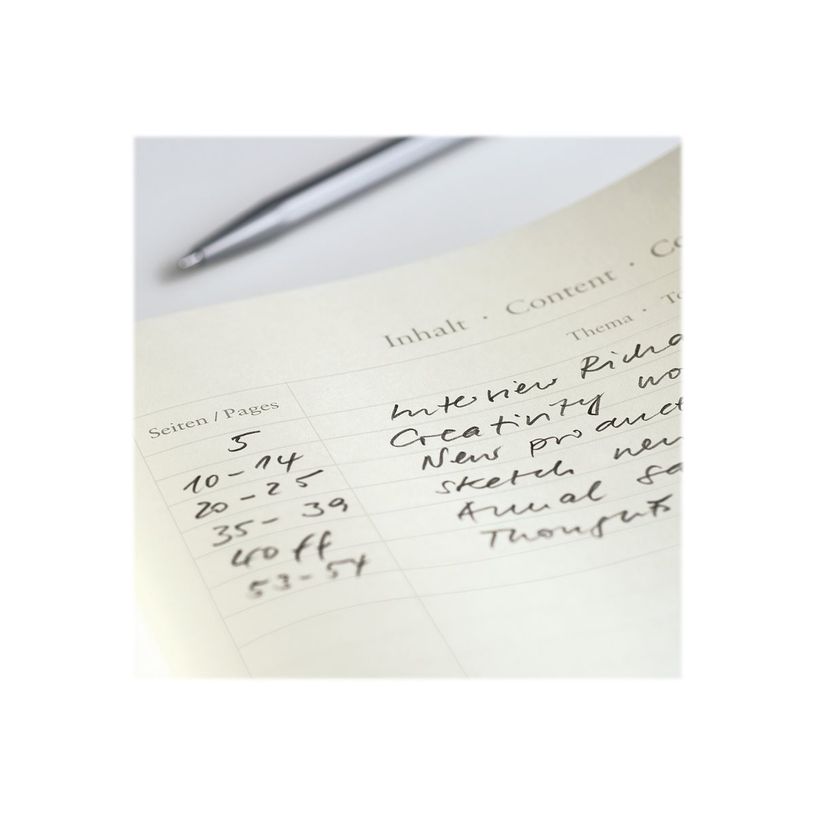 Inhalt · Content ·
Thema ·
Seiten / Pages
5 Interview
10 - 14 Creativity
20 - 25 New product
35 - 39 Sketch
40 ff Annual
53 - 54 Thoughts